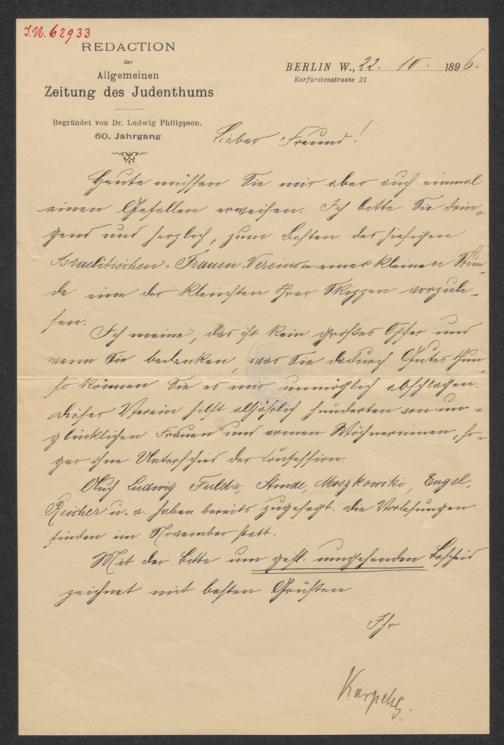 I.N. 62933
REDACTION
der
Allgemeinen
Zeitung des Judenthums
Begründet von Dr. Ludwig Philippson.
60. Jahrgang
BERLIN W., 22. 10. 1896.
Kurfürstenstrasse 21
Lieber Freund!
Heute müssen Sie mir aber auch einmal
einen Gefallen erweisen. Ich bitte Sie drin-
gend und herzlich, zum Besten des hiesigen
Israelitischen-Frauen-Vereins in einer kleinen Stun-
de eine der kleinsten Ihrer Skizzen vorzule-
sen.
Ich meine, das ist kein großes Opfer und
wenn Sie bedenken, was Sie dadurch Gutes thun,
so können Sie es mir unmöglich abschlagen.
Dieser Verein hilft alljährlich hunderten von un-
glücklichen Frauen und armen Wöchnerinnen, so-
gar ohne Unterschied der Confession.
Auch Ludwig Fulda, Moszkowski, Engel,
Reicher u. a. haben bereits zugesagt. Die Vorlesungen
finden im November statt.
Mit der Bitte um gefl. umgehenden Bescheid
zeichnet mit besten Grüßen
Ihr
Karpeles.